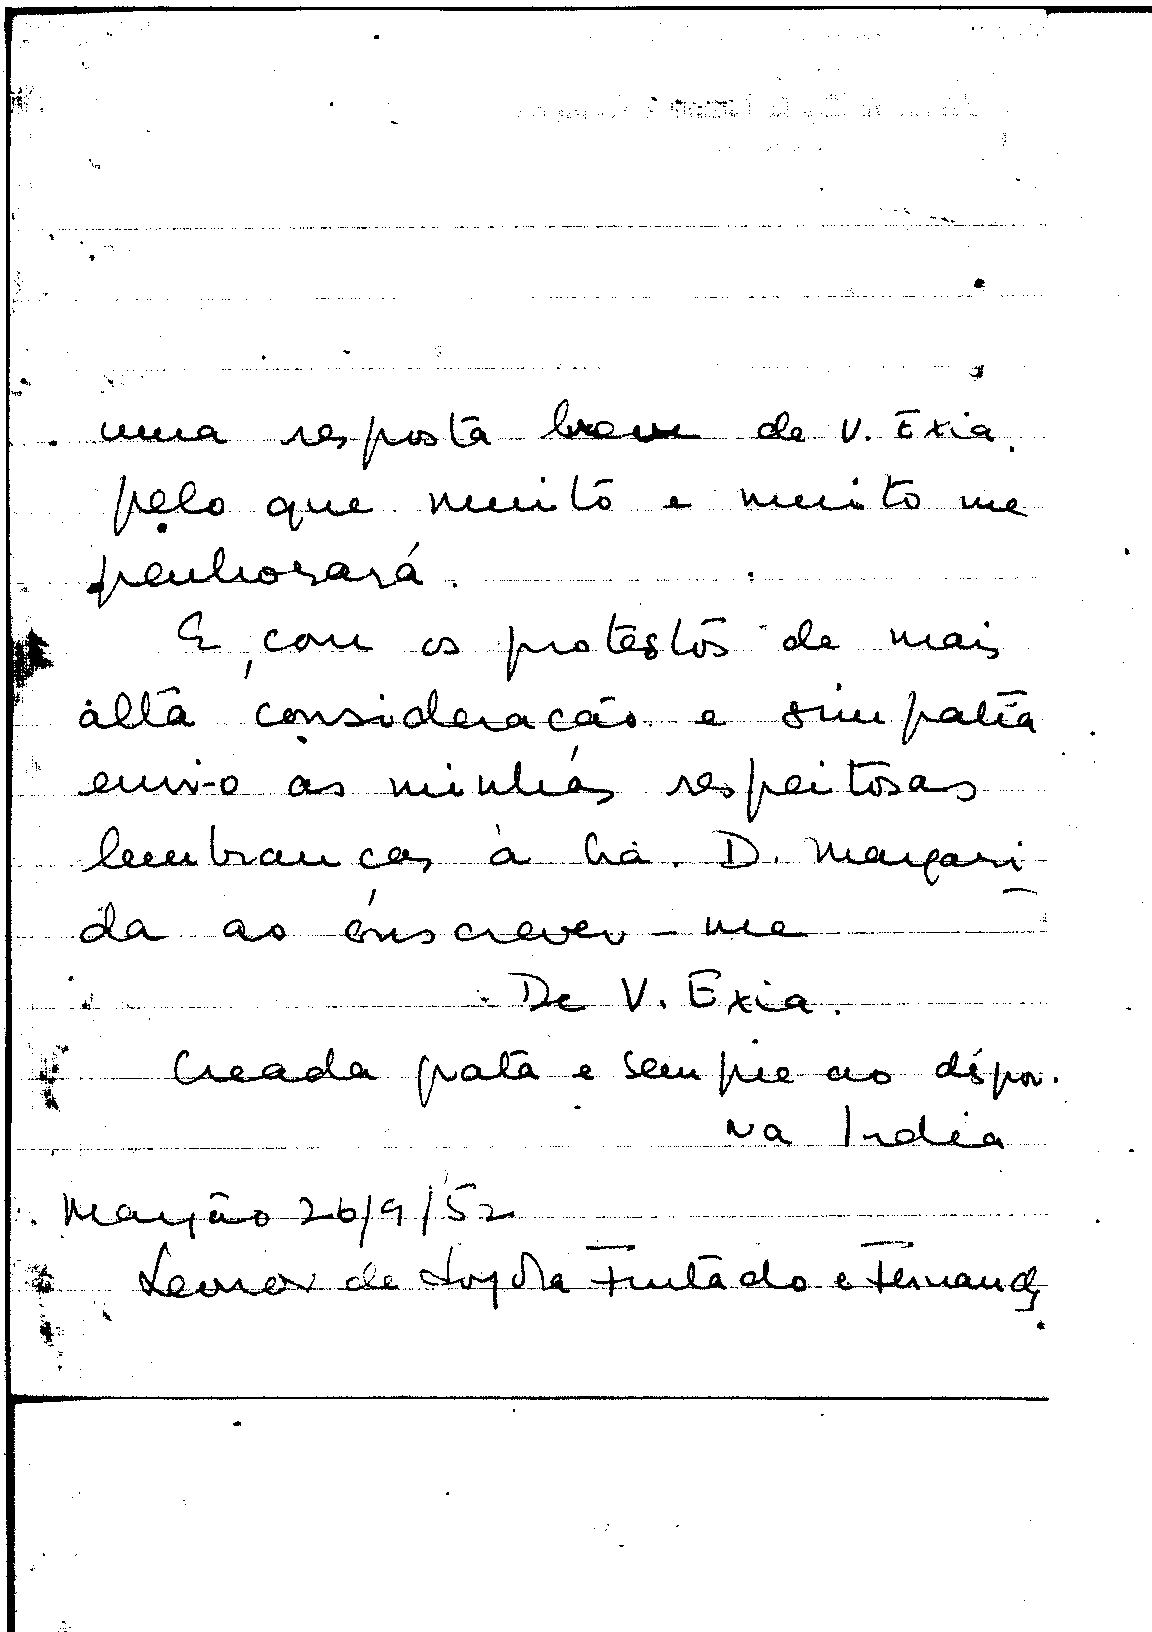 uma resposta breve de V. Exia.
pelo que muito e muito me
penhorará.
E, com os protestos de mais
alta consideração e simpatia
envio as minhas respeitosas
lembranças à Sra. D. Margari-
da ao inscrever-me
De V. Exia.
Creada grata e sempre ao dispor.
na India
Margão 26/9/52
Leonor de Loyola Furtado e Fernandes